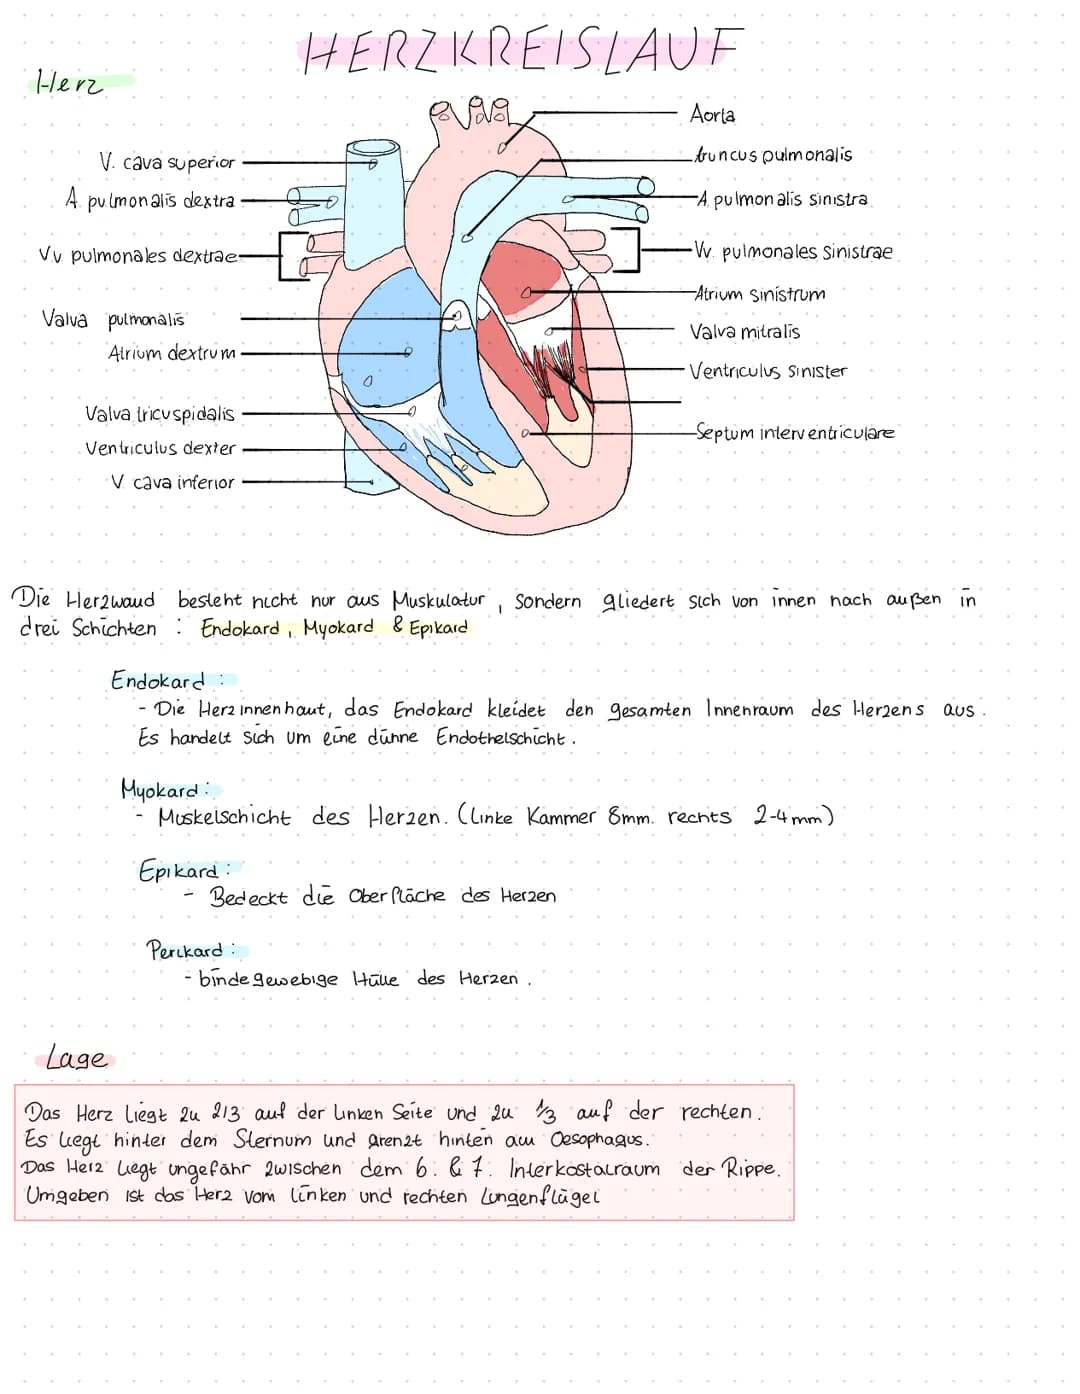 HERZKREISLAUF
Herz
V. cava superior
A. pulmonalis dextra
Vv pulmonales dextrae
Valva pulmonalis
Atrium dextrum
Valva tricuspidalis
Ventriculus dexter
V cava inferior
Aorta
truncus pulmonalis
A. pulmonalis sinistra
Vv. pulmonales sinistrae
Atrium sinistrum
Valva mitralis
Ventriculus sinister
Septum interventriculare
Die Herzwand besteht nicht nur aus Muskulatur, sondern gliedert sich von innen nach außen in
drei Schichten : Endokard, Myokard & Epikard
Endokard :
- Die Herzinnenhaut, das Endokard kleidet den gesamten Innenraum des Herzens aus.
Es handelt sich um eine dünne Endothelschicht.
Myokard :
- Muskelschicht des Herzen. (Linke Kammer 8mm. rechts 2-4mm)
Epikard :
- Bedeckt die Oberfläche des Herzen
Perikard :
- bindegewebige Hülle des Herzen.
Lage
Das Herz liegt zu 2/3 auf der linken Seite und zu 1/3 auf der rechten.
Es liegt hinter dem Sternum und grenzt hinten am Oesophagus.
Das Herz liegt ungefähr zwischen dem 6. & 7. Interkostalraum der Rippe.
Umgeben ist das Herz vom linken und rechten Lungenflügel